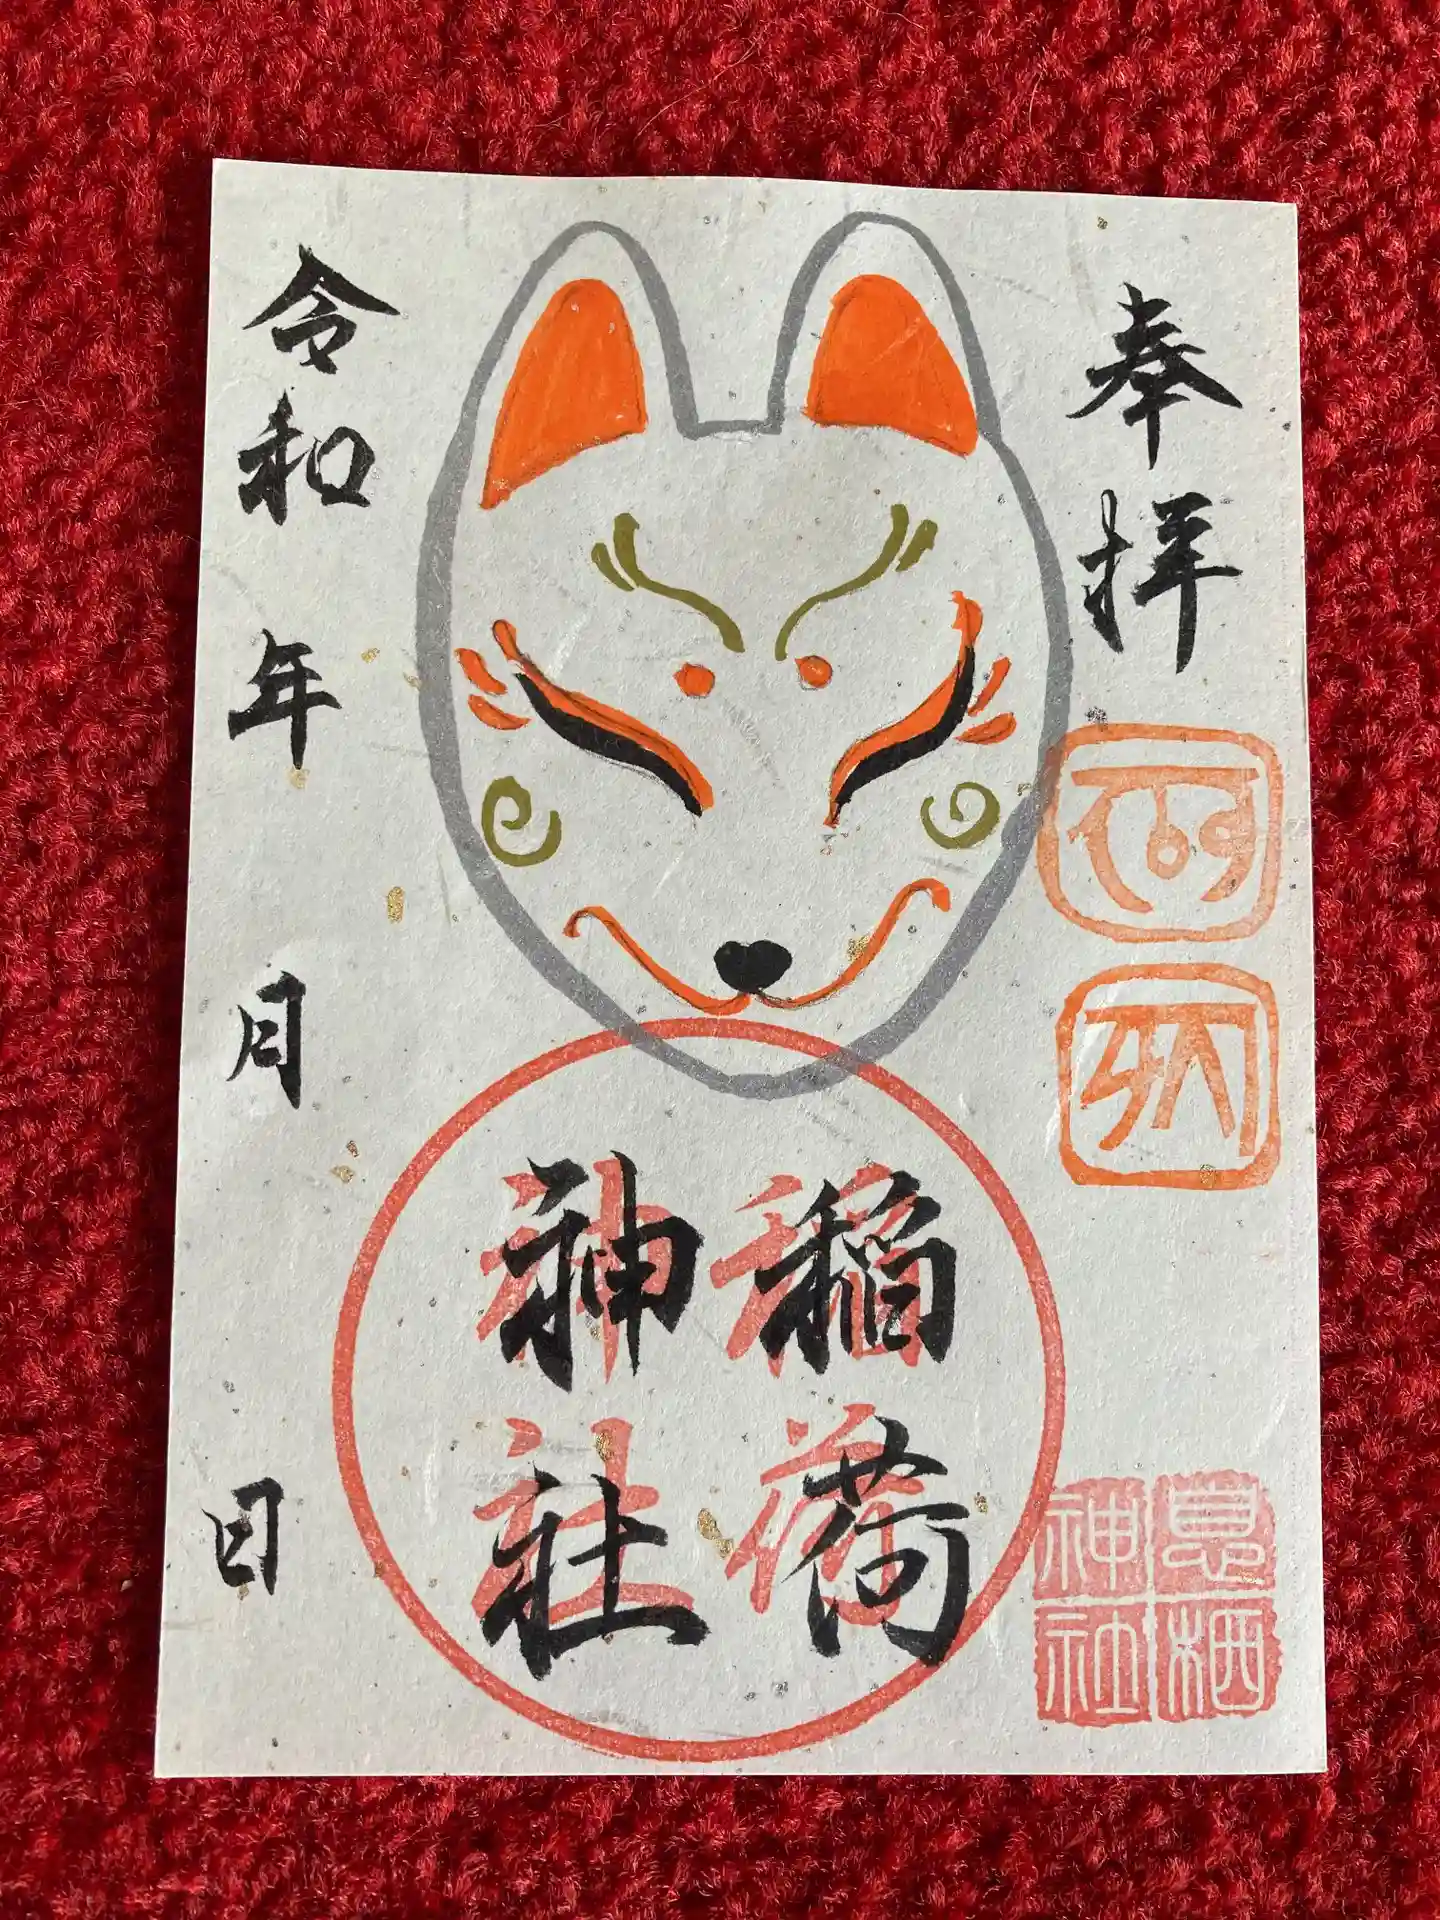 奉拝
息栖
神社
稲荷
神社
令和 年 月 日